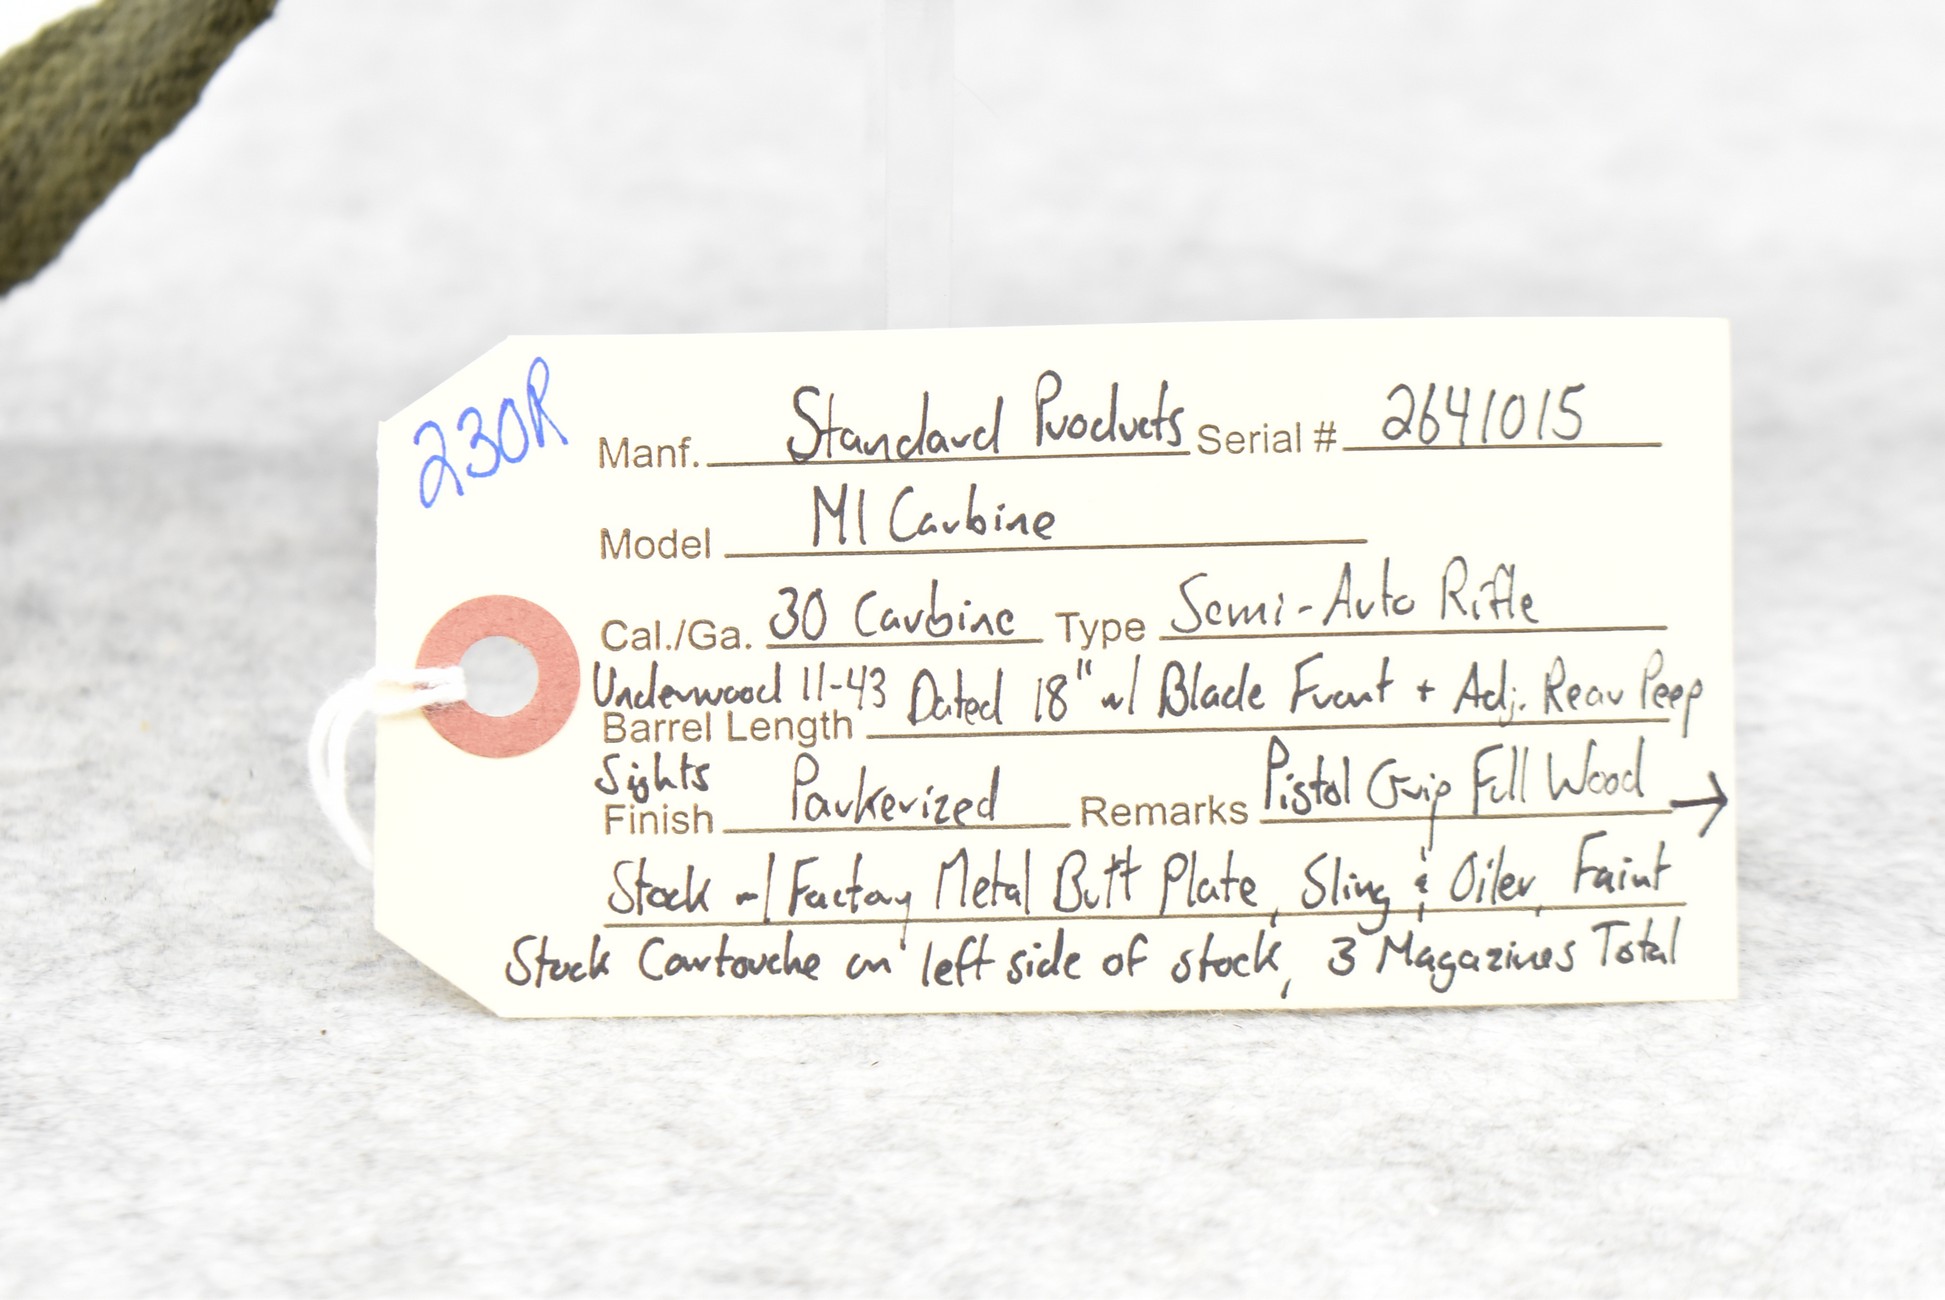 230R
Manf. Standard Products Serial # 2641015
Model M1 Carbine
Cal./Ga. 30 Carbine Type Semi-Auto Rifle
Underwood 11-43 Dated 18" w/ Blade Front + Adj. Rear Peep
Barrel Length
Sights
Finish Parkerized Remarks Pistol Grip Full Wood →
Stock w/ Factory Metal Butt Plate, Sling & Oiler, Faint
Stock Cartouche on left side of stock, 3 Magazines Total